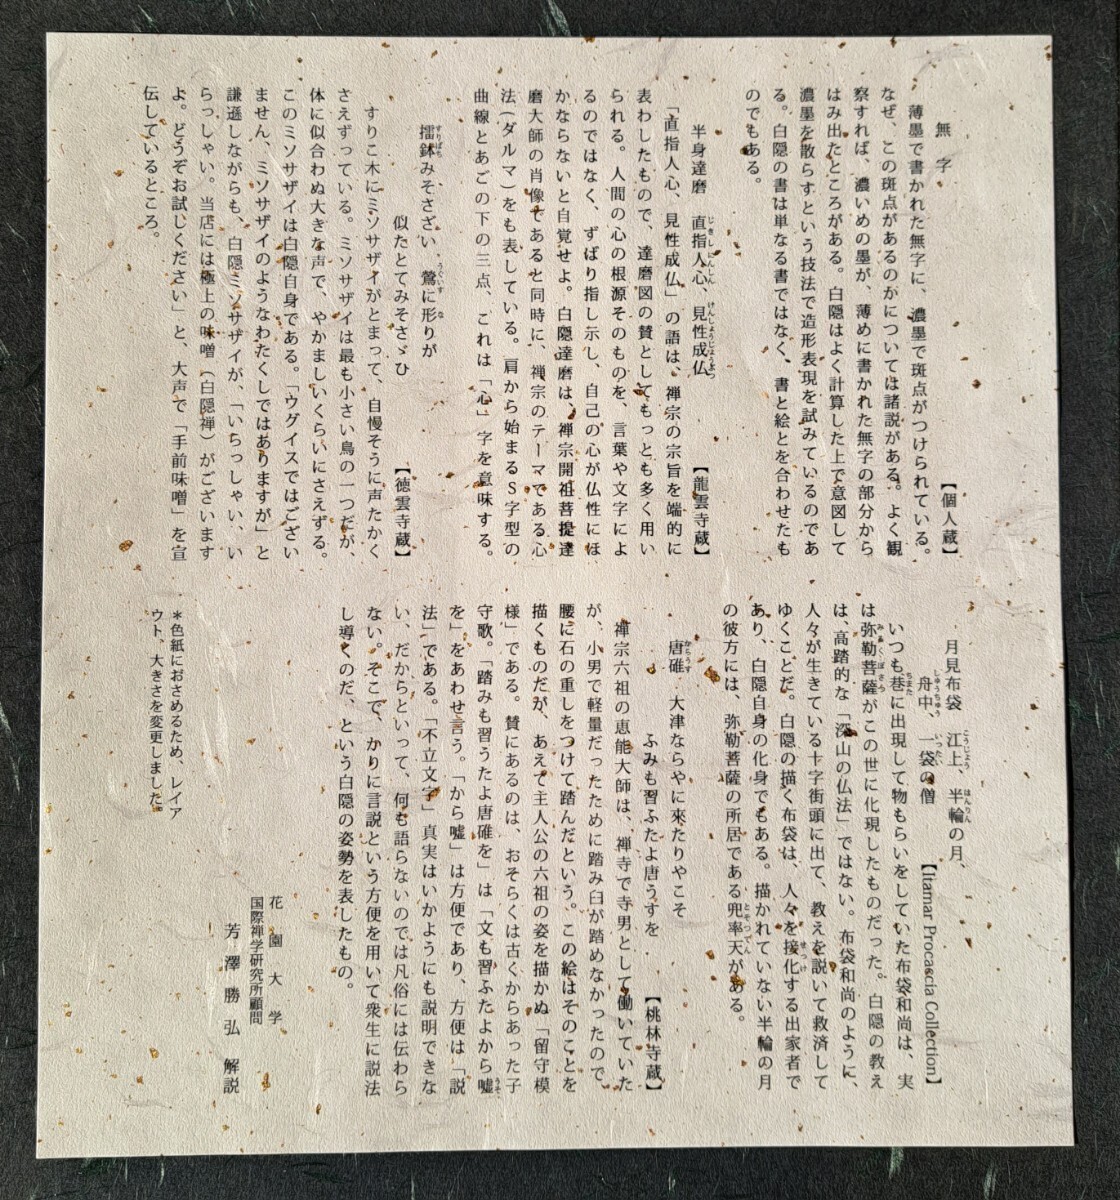 無字　【個人蔵】
薄墨で書かれた無字に、濃墨で斑点がつけられている。
なぜ、この斑点があるのかについては諸説がある。よく観
察すれば、濃いめの墨が、薄めに書かれた無字の部分から
はみ出たところがある。白隠はよく計算した上で意図して
濃墨を散らすという技法で造形表現を試みているのであ
る。白隠の書は単なる書ではなく、書と絵とを合わせたも
のでもある。
半身達磨　直指人心、見性成仏　【龍雲寺蔵】
じきしにんしん　けんしょうじょうぶつ
「直指人心、見性成仏」の語は、禅宗の宗旨を端的に
表わしたもので、達磨図の賛としてもっとも多く用い
られる。人間の心の根源そのものを、言葉や文字によ
るのではなく、ずばり指し示し、自己の心が仏性にほ
かならないと自覚せよ。白隠達磨は、禅宗開祖菩提達
磨大師の肖像であると同時に、禅宗のテーマである心
法(ダルマ)をも表している。肩から始まるS字型の
曲線とあごの下の三点、これは「心」字を意味する。
擂鉢みそさざい　鶯に形りが
すりばち　うぐいす　な
似たとてみそさゞひ　【徳雲寺蔵】
すりこ木にミソサザイがとまって、自慢そうに声たかく
さえずっている。ミソサザイは最も小さい鳥の一つだが、
体に似合わぬ大きな声で、やかましいくらいにさえずる。
このミソサザイは白隠自身である。「ウグイスではござい
ません、ミソサザイのようなわたくしではありますが」と
謙遜しながらも、白隠ミソサザイが、「いらっしゃい、い
らっしゃい。当店には極上の味噌(白隠禅)がございます
よ。どうぞお試しください」と、大声で「手前味噌」を宣
伝しているところ。
月見布袋　江上、半輪の月、
こうじょう　はんりん
舟中、一袋の僧　【Itamar Procaccia Collection】
しゅうちゅう　いったい
いつも巷に出現して物もらいをしていた布袋和尚は、実
ちまた
は弥勒菩薩がこの世に化現したものだった。白隠の教え
みろくぼさつ
は、高踏的な「深山の仏法」ではない。布袋和尚のように、
人々が生きている十字街頭に出て、教えを説いて救済して
ゆくことだ。白隠の描く布袋は、人々を接化する出家者で
せっけ
あり、白隠自身の化身でもある。描かれていない半輪の月
の彼方には、弥勒菩薩の所居である兜率天がある。
とそつてん
唐碓　大津ならやに來たりやこそ
からうす
ふみも習ふたよ唐うすを　【桃林寺蔵】
禅宗六祖の恵能大師は、禅寺で寺男として働いていた
が、小男で軽量だったために踏み臼が踏めなかったので、
腰に石の重しをつけて踏んだという。この絵はそのことを
描くものだが、あえて主人公の六祖の姿を描かぬ「留守模
様」である。賛にあるのは、おそらくは古くからあった子
守歌。「踏みも習うたよ唐碓を」は「文も習ふたよから嘘
うそ
を」をあわせ言う。「から嘘」は方便であり、方便は「説
法」である。「不立文字」真実はいかようにも説明できな
い、だからといって、何も語らないのでは凡俗には伝わら
ない。そこで、かりに言説という方便を用いて衆生に説法
し導くのだ、という白隠の姿勢を表したもの。
花園大学
国際禅学研究所顧問
芳澤勝弘　解説
＊色紙におさめるため、レイア
ウト、大きさを変更しました。